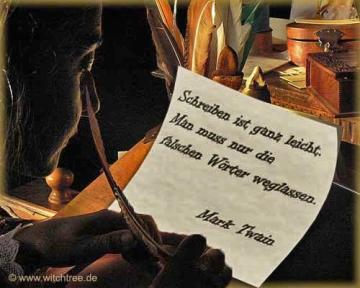 Schreiben ist ganz leicht.
Man muss nur die
falschen Wörter weglassen.
Mark Twain
© www.witchtree.de